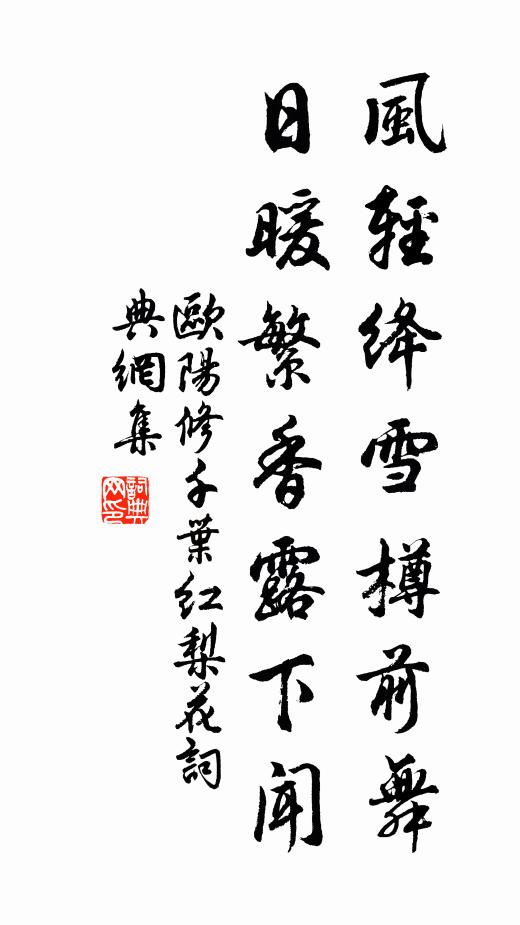 風輕絳雪樽前舞
日暖繁香露下聞
歐陽修千葉紅梨花詞
典網集
詞典网印